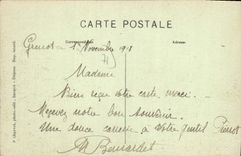 CARTE POSTALE
Correspondance
Adresse
1 Novembre 1918
Madame
Bien reçu votre carte, merci.
Recevez notre bon souvenir.
Une douce caresse à votre gentil Pierrot
M Benardet